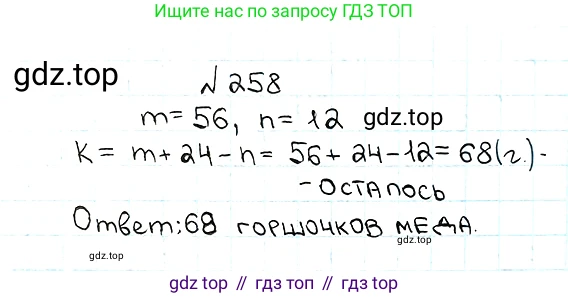 Ищите нас по запросу ГДЗ ТОП
gdz.top
№ 258
m = 56, n = 12 gdz.top
K = m + 24 - n = 56 + 24 - 12 = 68 (г.) -
- осталось
Ответ: 68 горшочков меда.
gdz.top
gdz.top
gdz.top // гдз топ // гдз.топ